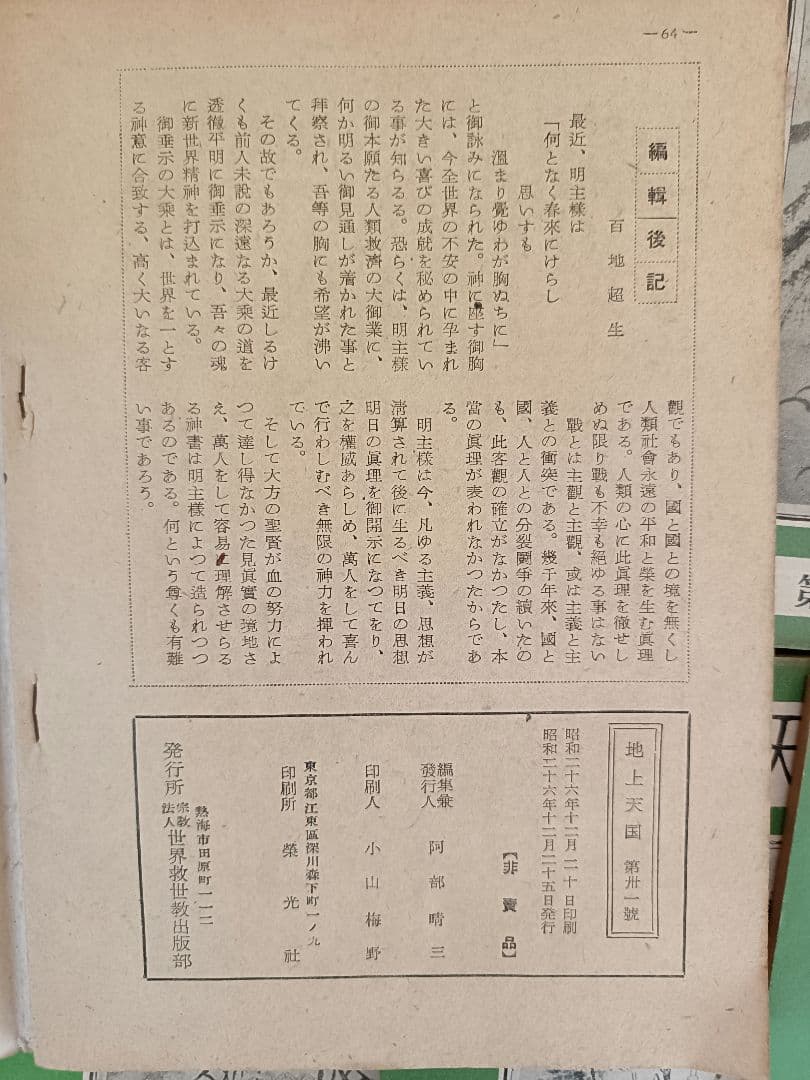 —64—
編輯後記
百地超生
最近、明主様は
「何となく春來にけらし
思いすも
溫まり覺ゆわが胸ぬちに」
と御詠みになられた。神に座す御胸
には、今全世界の不安の中に孕まれ
た大きい喜びの成就を秘められてい
る事が知らるる。恐らくは、明主様
の御本願たる人類救濟の大御業に、
何か明るい御見通しが着かれた事と
拜察され、吾等の胸にも希望が沸い
てくる。
その故でもあろうか、最近しるけ
くも前人未説の深遠なる大乘の道を
透徹平明に御垂示になり、吾々の魂
に新世界精神を打込まれている。
御垂示の大乘とは、世界を一とす
る神意に合致する、高く大いなる客
觀でもあり、國と國との境を無くし
人類社會永遠の平和と榮を生む眞理
である。人類の心に此眞理を徹せし
めぬ限り戰も不幸も絕ゆる事はない
戰とは主觀と主觀、或は主義と主
義との衝突である。幾千年來、國と
國、人と人との分裂鬪爭の續いたの
も、此客觀の確立がなかつたし、本
當の眞理が表われなかつたからであ
る。
明主様は今、凡ゆる主義、思想が
淸算されて後に生るべき明日の思想
明日の眞理を御開示になつており、
之を權威あらしめ、萬人をして喜ん
で行わしむべき無限の神力を揮われ
ている。
そして大方の聖賢が血の努力によ
つて達し得なかつた見眞實の境地さ
え、萬人をして容易に理解させらる
る神書は明主様によつて造られつつ
あるのである。何という尊くも有難
い事であろう。
地上天国 第卅一號
昭和二十六年十二月二十日印刷
昭和二十六年十二月二十五日発行
【非賣品】
編集兼
發行人 阿部晴三
印刷人 小山梅野
東京都江東區深川森下町一ノ九
印刷所 榮光社
熱海市田原町一一二
発行所 宗教法人 世界救世教出版部
第
天